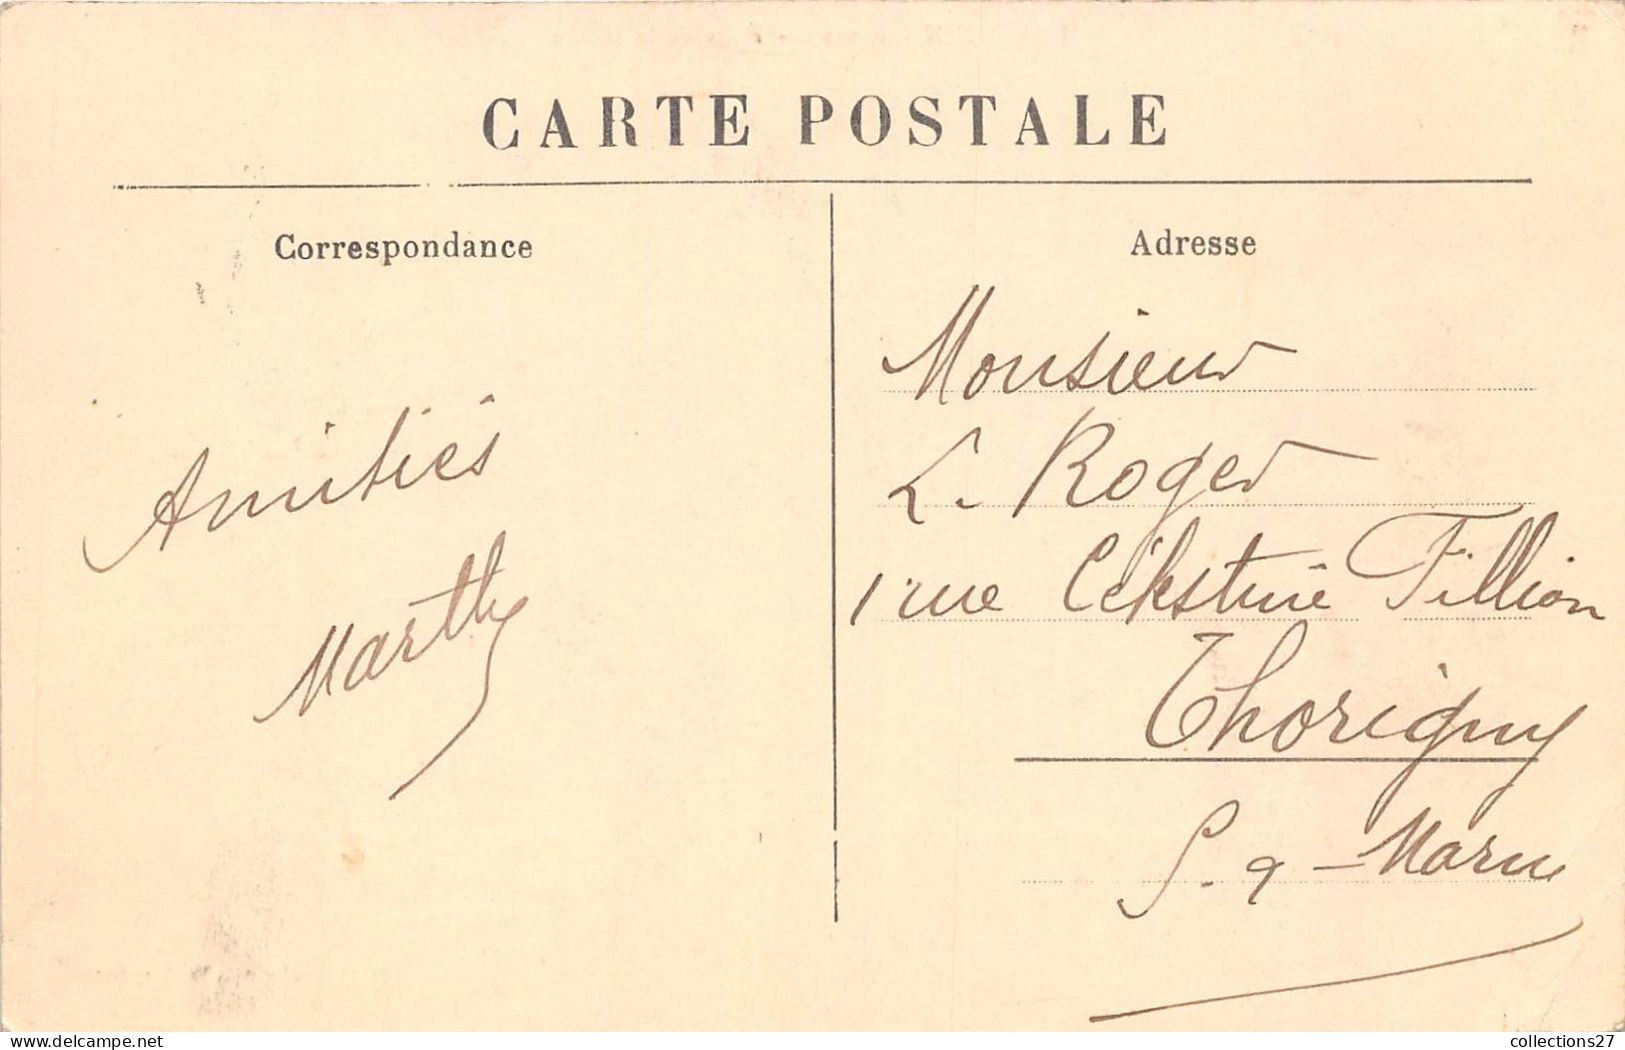 CARTE POSTALE
Correspondance
Adresse
Amitiés
Marthy
Monsieur
L. Roger
1 rue Célestine Fillion
Thorigny
S. &  - Marne
delcampe.net
collections27